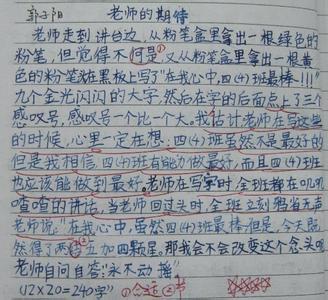 郭子阳 老师的期待
老师走到讲台边,从粉笔盒里拿出一根绿色的
粉笔,但觉得不何是①又从粉笔盒里拿出一根黄
色的粉笔在黑板上写了"在我心中,四(4)班最棒!!!"
九个金光闪闪的大字,然后在字的后面点上了三个
感叹号,感叹号一个比一个大。我估计老师在写这些
的时候,心里一定在想:四(4)班虽然不是最好的
但是我相信四(4)班有能力做最好,而且四(4)班
也应该能做到最好。老师在写字时,全班都在叽叽
喳喳的讲话,当老师回过头时,全班立刻鸦雀无声
老师说:"在我心中,虽然四(4)班最棒,但是,今天既
然得了两②五加四颗星。那我会不会改变这个念头呢
老师自问自答:"永不动摇"
(12×20=240字) ①合适 ②节